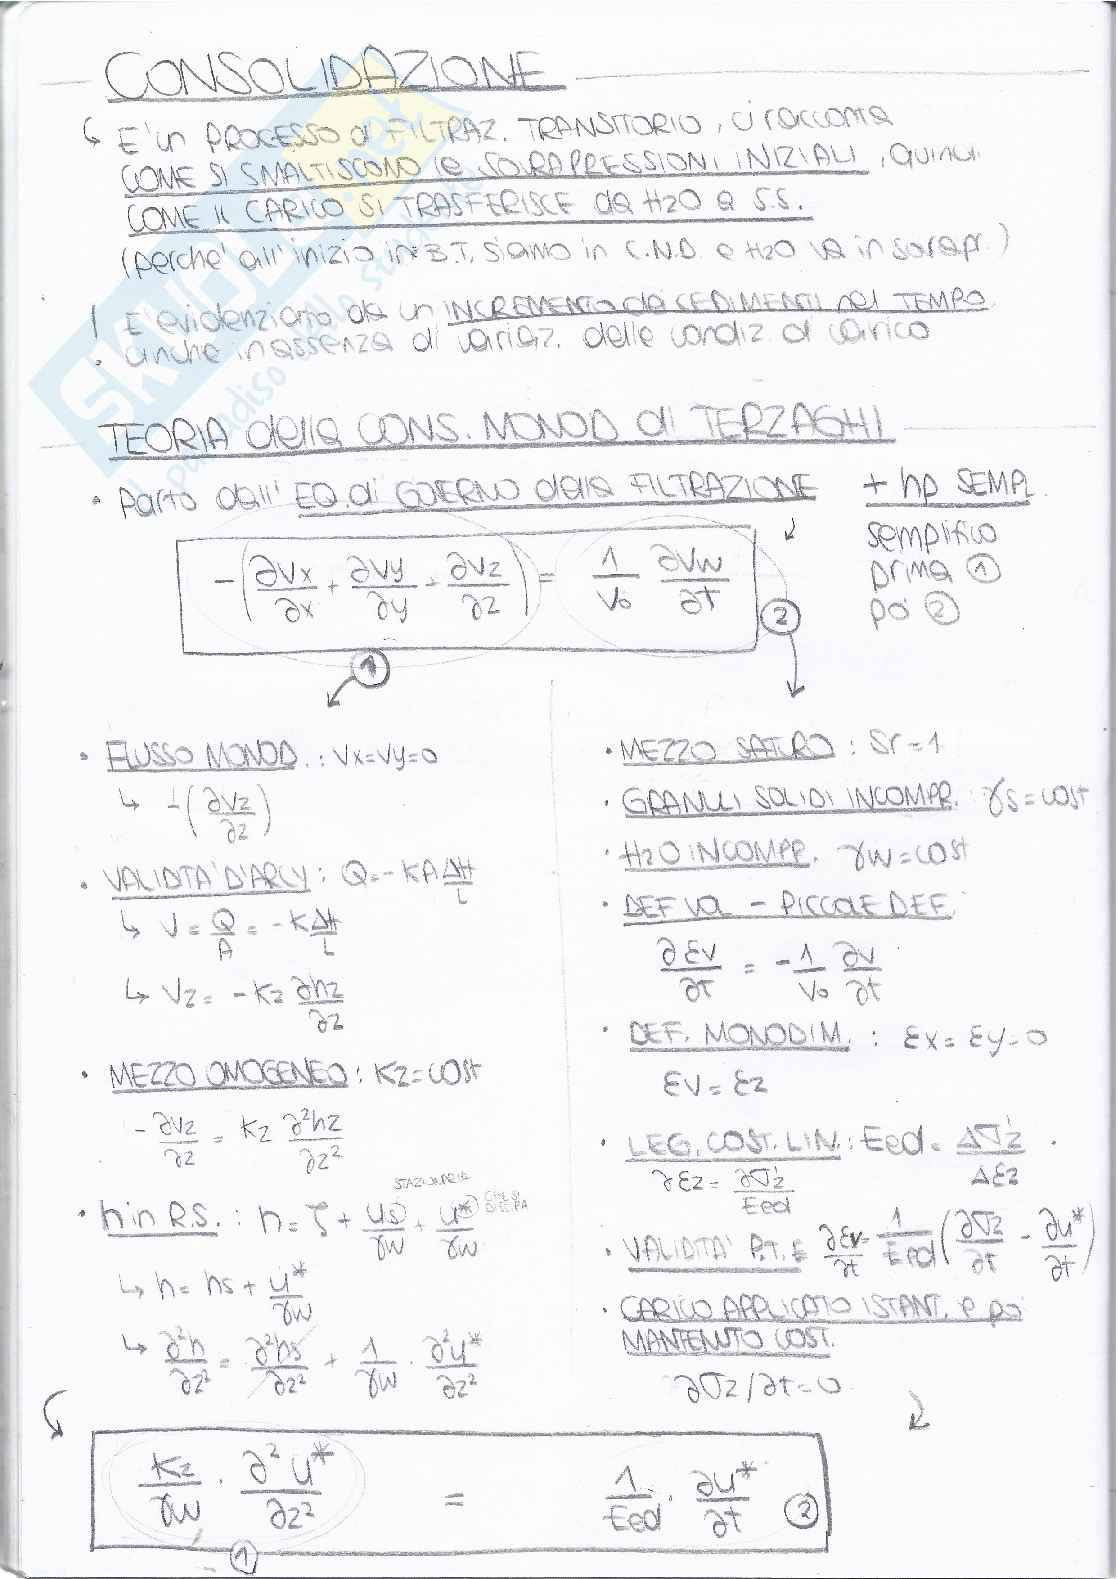 CONSOLIDAZIONE
↳ E' un PROCESSO di FILTRAZ. TRANSITORIO, ci racconta
COME SI SMALTISCONO le SOVRAPRESSIONI INIZIALI, quindi
COME IL CARICO SI TRASFERISCE da H2O a S.S.
(perche' all'inizio in B.T. siamo in C.N.D. e H2O va in sovrapr.)
! E' evidenziato da un INCREMENTO dei CEDIMENTI nel TEMPO
anche in assenza di variaz. delle condiz. di carico
TEORIA della CONS. MONOD di TERZAGHI
• Parto dall' EQ. di GOVERNO della FILTRAZIONE + hp SEMPL.
semplifico
prima ①
poi ②
-(∂Vx/∂x + ∂Vy/∂y + ∂Vz/∂z) = 1/V₀ ∂Vw/∂t
① ②
• FLUSSO MONOD. : Vx=Vy=0
↳ -(∂Vz/∂z)
• VALIDITA' D'ARCY : Q = -KA ΔH/L
↳ V = Q/A = -K ΔH/L
↳ Vz = -Kz ∂hz/∂z
• MEZZO OMOGENEO : Kz=cost
-∂Vz/∂z = Kz ∂²hz/∂z²
• h in R.S. : h = ζ + us/γw + u*/γw
STAZIONARIA
↳ h = hs + u*/γw
↳ ∂²h/∂z² = ∂²hs/∂z² + 1/γw · ∂²u*/∂z²
• MEZZO SATURO : Sr=1
• GRANULI SOLIDI INCOMPR. γs=cost
• H2O INCOMPR. γw=cost
• DEF VOL - PICCOLE DEF.
∂εv/∂t = -1/V₀ ∂v/∂t
• DEF. MONODIM. : εx = εy = 0
εv = εz
• LEG. COST. LIN. : Eed = Δσ'z/Δεz
∂εz = ∂σ'z/Eed
• VALIDITA' P.T.E ∂εv/∂t = 1/Eed (∂σz/∂t - ∂u*/∂t)
• CARICO APPLICATO ISTANT. e poi
MANTENUTO COST.
∂σz/∂t=0
Kz/γw · ∂²u*/∂z² = 1/Eed · ∂u*/∂t
① ②